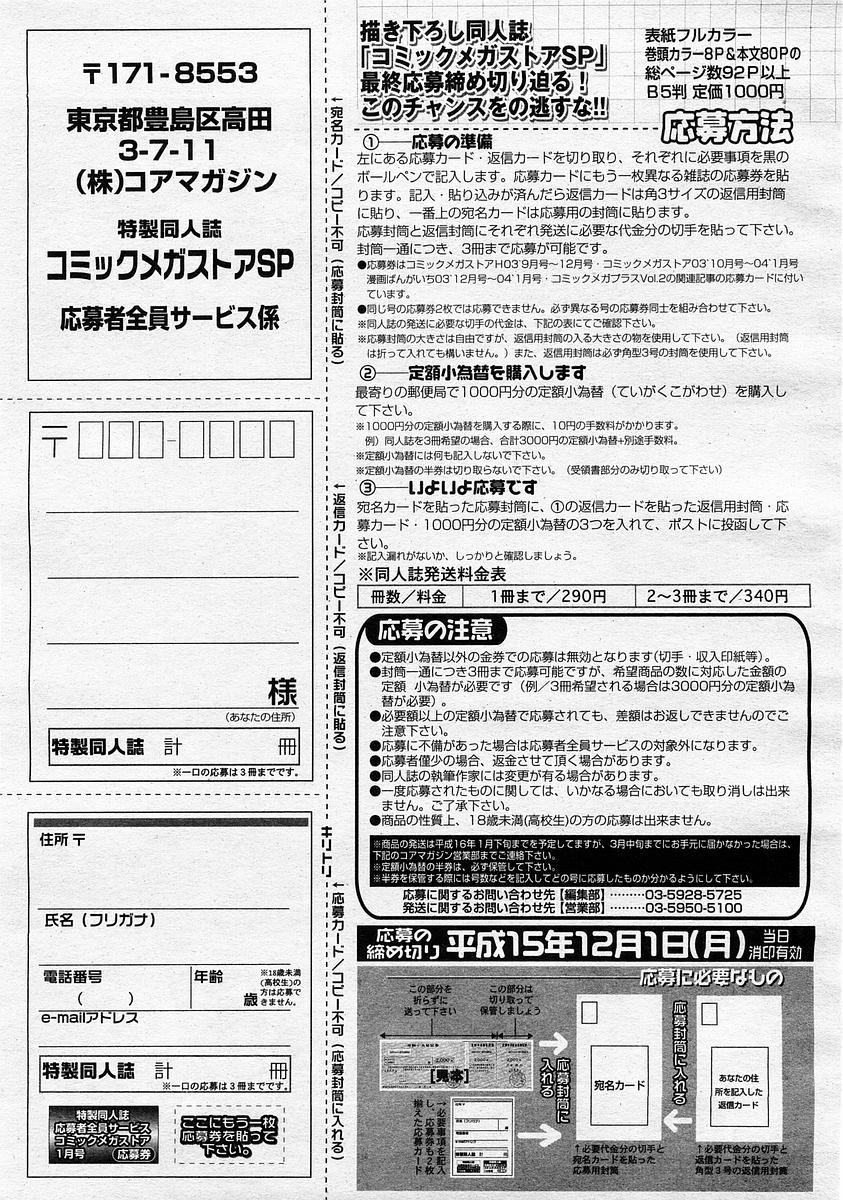 〒171-8553
東京都豊島区高田
3-7-11
(株)コアマガジン
特製同人誌
コミックメガストアSP
応募者全員サービス係
〒
様
(あなたの住所)
特製同人誌 計 冊
※一口の応募は3冊までです。
住所 〒
氏名（フリガナ）
電話番号
（ ）
年齢
歳
※18歳未満
(高校生)の
方は応募で
きません。
e-mailアドレス
特製同人誌 計 冊
※一口の応募は3冊までです。
特製同人誌
応募者全員サービス
コミックメガストア
1月号 応募券
ここにもう一枚
応募券を貼って
下さい。
←宛名カード／コピー不可（応募封筒に貼る）
←返信カード／コピー不可（返信封筒に貼る）
キリトリ
←応募カード／コピー不可（応募封筒に入れる）
描き下ろし同人誌
「コミックメガストアSP」
最終応募締め切り迫る！
このチャンスをの逃すな!!
表紙フルカラー
巻頭カラー8P&本文80Pの
総ページ数92P以上
B5判 定価1000円
応募方法
①――応募の準備
左にある応募カード・返信カードを切り取り、それぞれに必要事項を黒の
ボールペンで記入します。応募カードにもう一枚異なる雑誌の応募券を貼
ります。記入・貼り込みが済んだら返信カードは角3サイズの返信用封筒
に貼り、一番上の宛名カードは応募用の封筒に貼ります。
応募封筒と返信封筒にそれぞれ発送に必要な代金分の切手を貼って下さい。
封筒一通につき、3冊まで応募が可能です。
●応募券はコミックメガストアH03'9月号～12月号・コミックメガストア03'10月号～04'1月号
漫画ばんがいち03'12月号～04'1月号・コミックメガプラスVol.2の関連記事の応募カードに付い
ています。
●同じ号の応募券2枚では応募できません。必ず異なる号の応募券同士を組み合わせて下さい。
※同人誌の発送に必要な切手の代金は、下記の表にてご確認下さい。
※応募封筒の大きさは自由ですが、返信用封筒の入る大きさの物を使用して下さい。（返信用封筒
は折って入れても構いません。）また、返信用封筒は必ず角型3号の封筒を使用して下さい。
②――定額小為替を購入します
最寄りの郵便局で1000円分の定額小為替（ていがくこがわせ）を購入し
て下さい。
※1000円分の定額小為替を購入する際に、10円の手数料がかかります。
例）同人誌を3冊希望の場合、合計3000円の定額小為替+別途手数料。
※定額小為替には何も記入しないで下さい。
※定額小為替の半券は切り取らないで下さい。（受領書部分のみ切り取って下さい）
③――いよいよ応募です
宛名カードを貼った応募封筒に、①の返信カードを貼った返信用封筒・応
募カード・1000円分の定額小為替の3つを入れて、ポストに投函して下
さい。
※記入漏れがないか、しっかりと確認しましょう。
※同人誌発送料金表
冊数／料金 1冊まで／290円 2～3冊まで／340円
応募の注意
●定額小為替以外の金券での応募は無効となります(切手・収入印紙等)。
●封筒一通につき3冊まで応募可能ですが、希望商品の数に対応した金額の
定額 小為替が必要です（例／3冊希望される場合は3000円分の定額小為
替が必要）。
●必要額以上の定額小為替で応募されても、差額はお返しできませんのでご
注意下さい。
●応募に不備があった場合は応募者全員サービスの対象外になります。
●応募者僅少の場合、返金させて頂く場合があります。
●同人誌の執筆作家には変更が有る場合があります。
●一度応募されたものに関しては、いかなる場合においても取り消しは出来
ません。ご了承下さい。
●商品の性質上、18歳未満(高校生)の方の応募は出来ません。
※商品の発送は平成16年1月下旬までを予定してますが、3月中旬までにお手元に届かなかった場合は、
下記のコアマガジン営業部までご連絡下さい。
※定額小為替の半券は、必ず保管して下さい。
※半券を保管する際には号数などを記入してどの号に応募したものか分かるようにして下さい。
応募に関するお問い合わせ先【編集部】………03-5928-5725
発送に関するお問い合わせ先【営業部】………03-5950-5100
応募の
締め切り 平成15年12月1日(月) 当日
消印有効
応募に必要なもの
この部分を
折らずに
送って下さい
この部分は
切り取って
保管しましょう
【見本】
応募封筒に
入れる
→必要事項を記入
し、応募券も2枚
揃えた応募カード
宛名カード
↑必要代金分の切手と
宛名カードを貼った
応募用封筒
応募封筒に入れる
あなたの住
所を記入した
返信カード
↑必要代金分の切手と
返信カードを貼った
角型3号の返信用封筒